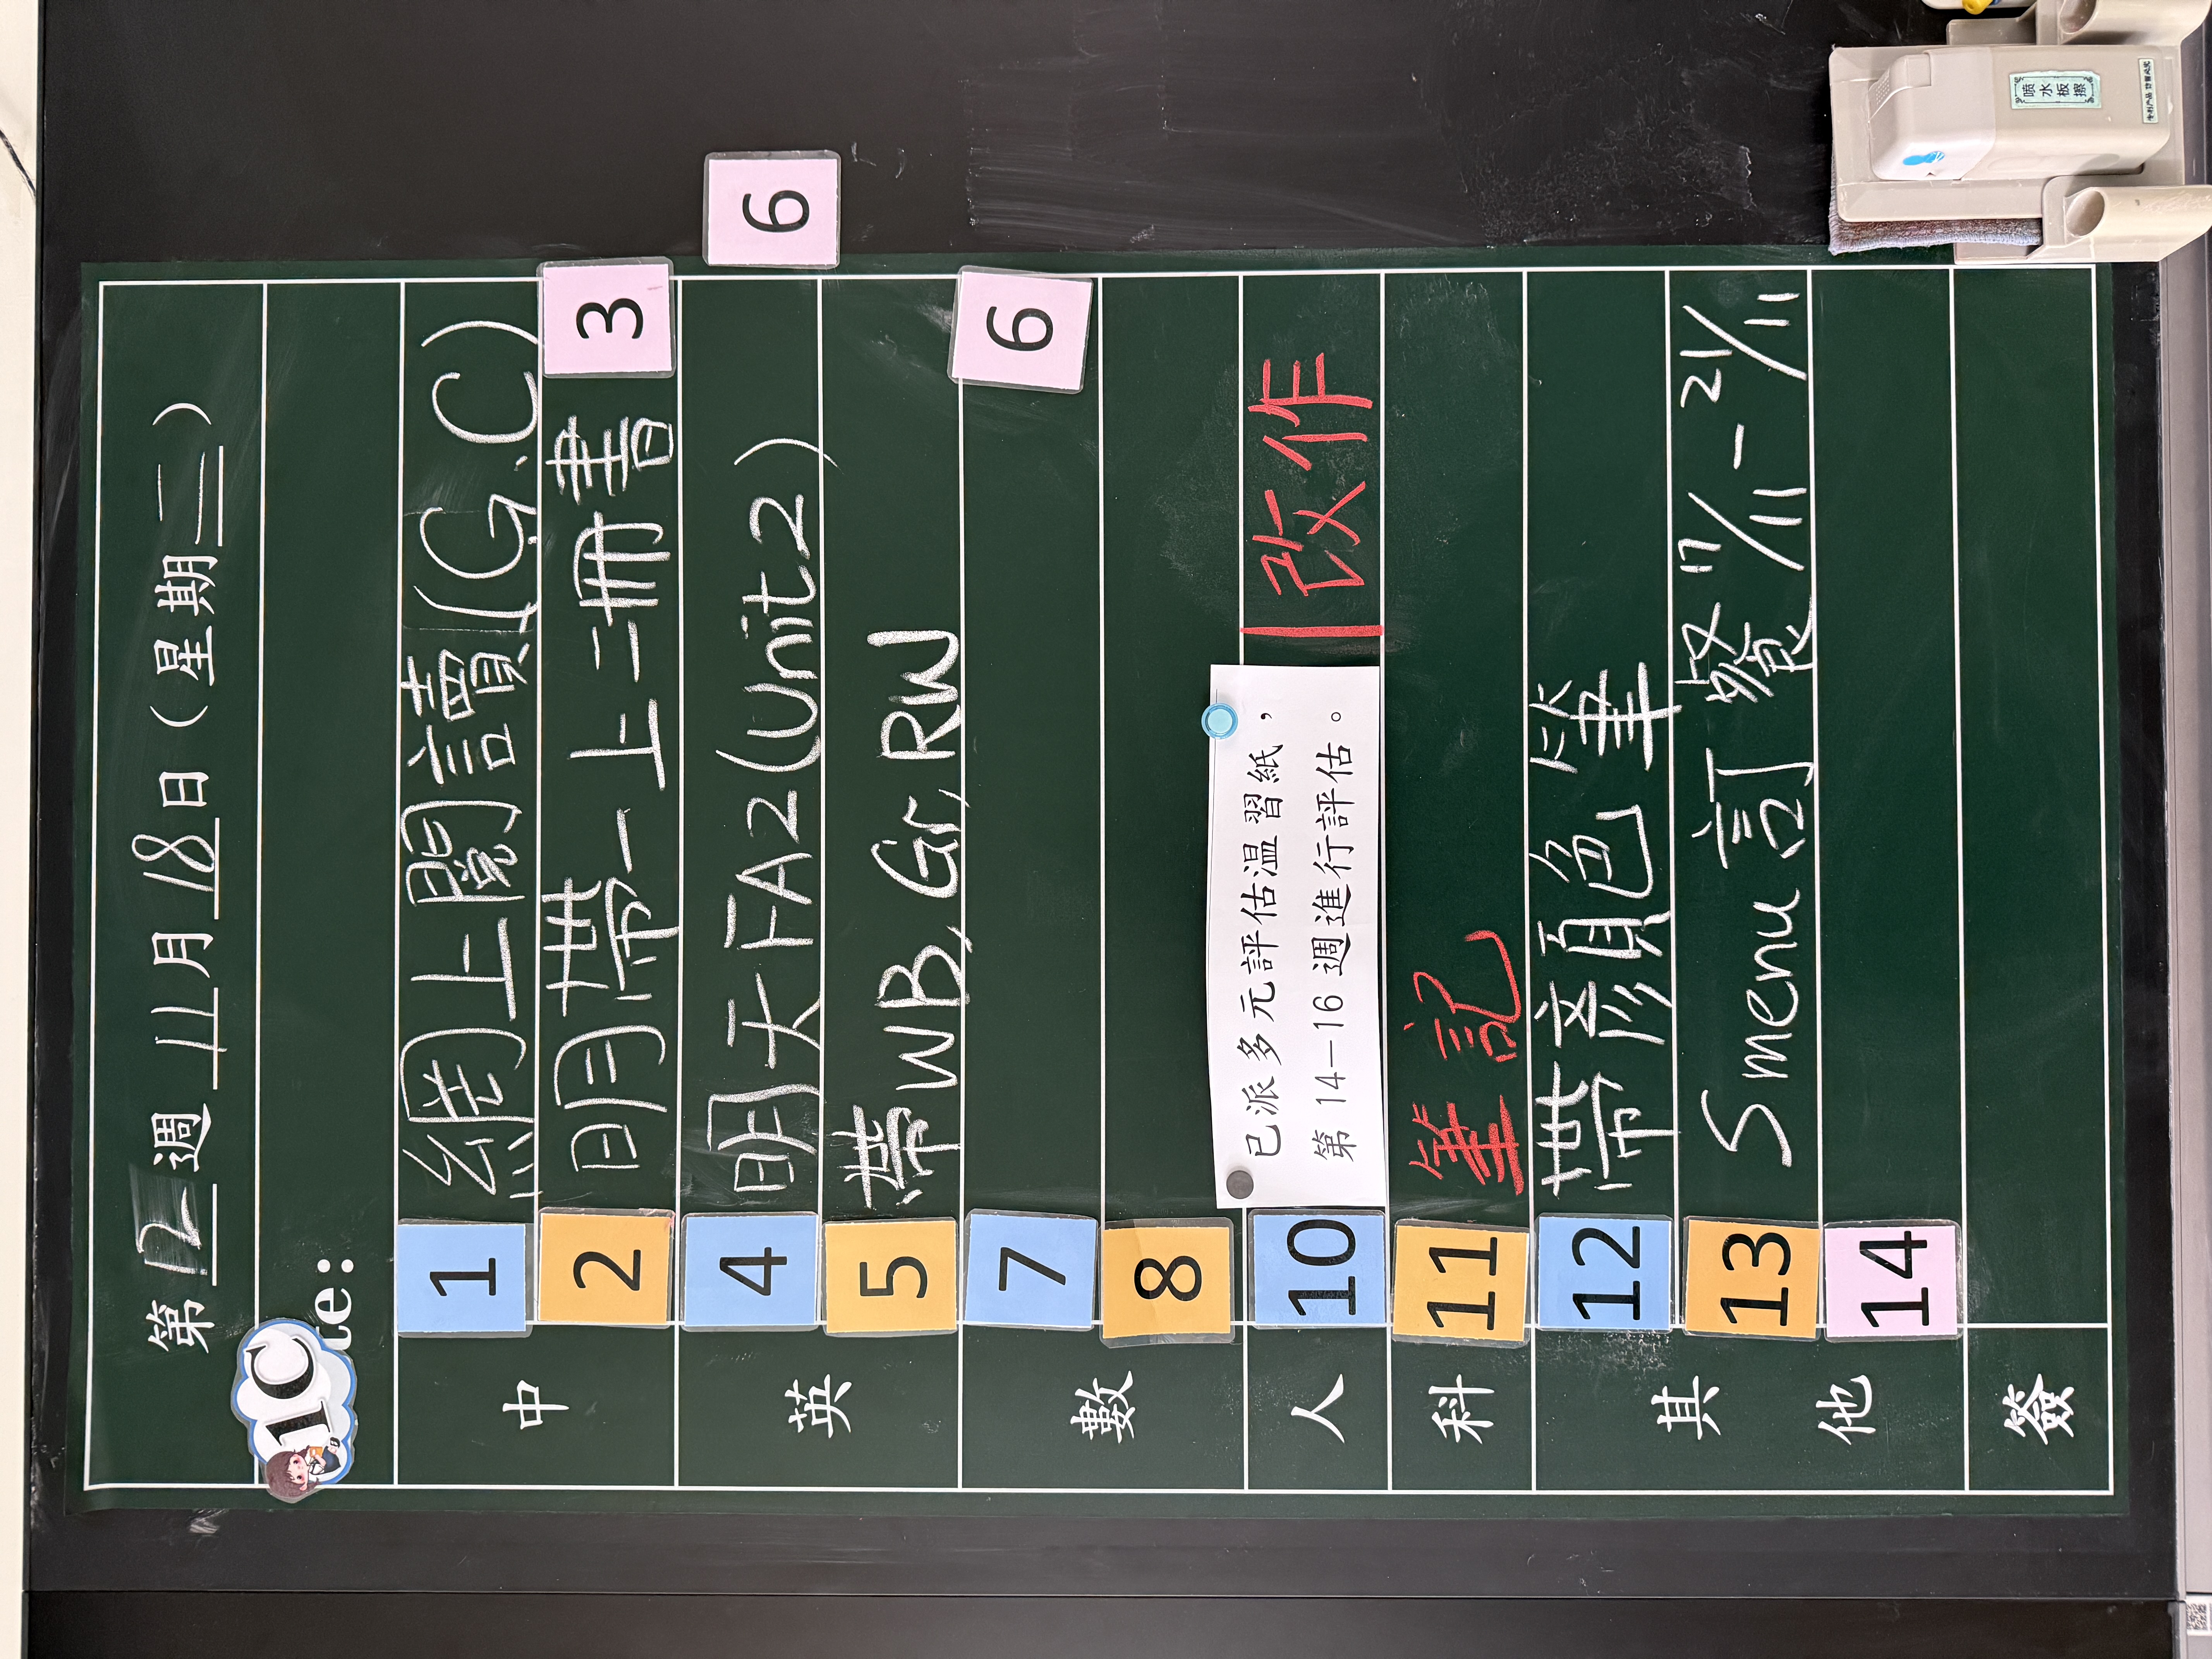 第 12 週 11 月 18 日（星期二）
1C
te:
中
1 網上閱讀(G.C)
2 明帶一上二冊書 3
6
英
4 明天FA2(Unit2)
5 帶WB, Gr, RW
數
7 6
8
人
10 已派多元評估温習紙，
第 14—16 週進行評估。
改作
科
11 筆記
其他
12 帶顏色筆
13 Smenu 訂餐 17/11 - 21/11
14
簽
喷水板擦